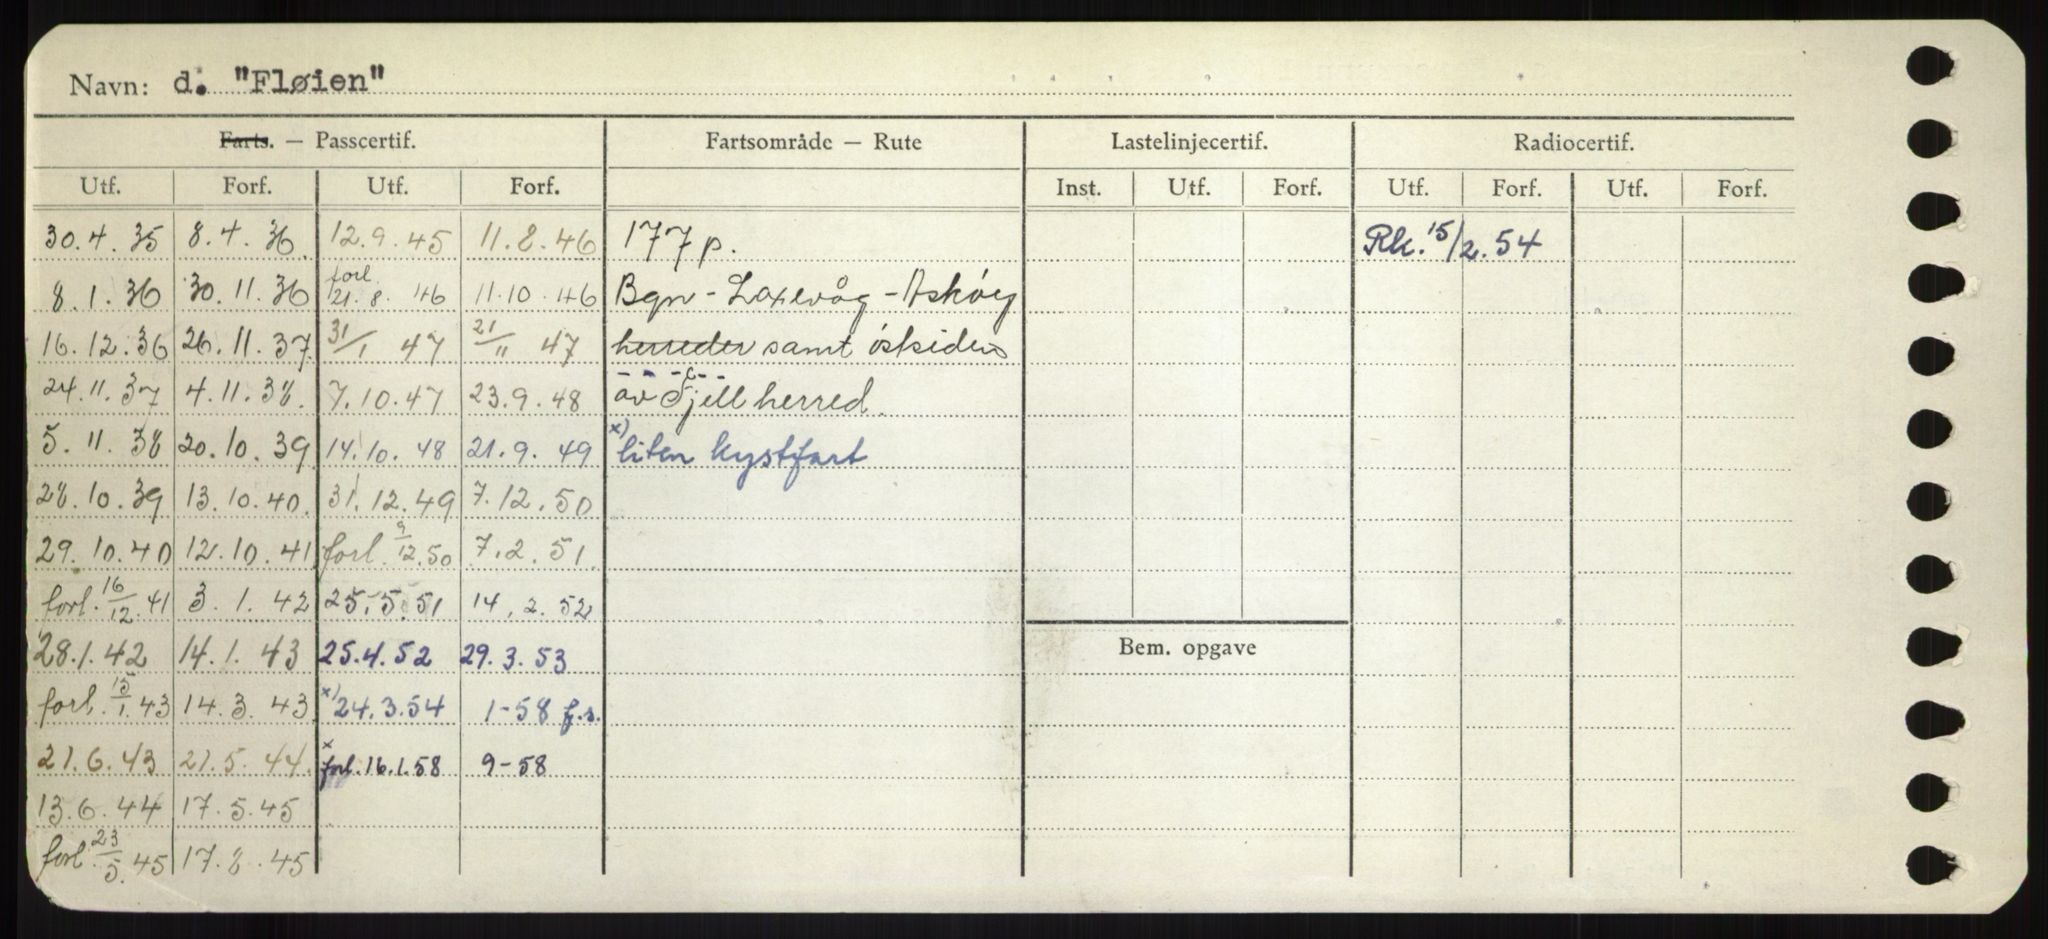 Navn: d. "Fløien"
Farts. — Passcertif. Fartsområde — Rute Lastelinjecertif. Radiocertif.
Utf. Forf. Utf. Forf. Inst. Utf. Forf. Utf. Forf. Utf. Forf.
30.4.35 8.4.36 12.9.45 11.8.46 177 p. Rk. 15/2.54
8.1.36 30.11.36 forl. 21.8.46 11.10.46 Bgn - Laxevåg - Askøy
16.12.36 26.11.37 31/1 47 21/11 47 herreder samt østsiden
24.11.37 4.11.38. 7.10.47 23.9.48 av Fjell herred.
5.11.38 20.10.39 14.10.48 21.9.49 x) liten kystfart
28.10.39 13.10.40. 31.12.49 7.12.50
29.10.40 12.10.41 forl. 9/12.50 7.2.51.
forl. 16/12.41 3.1.42 25.5.51 14.2.52
28.1.42 14.1.43 25.4.52 29.3.53 Bem. opgave
forl. 15/1.43 14.3.43 x) 24.3.54 1-58 f.s.
21.6.43 21.5.44. x forl. 16.1.58 9-58
13.6.44 17.5.45
forl. 23/5.45 17.8.45